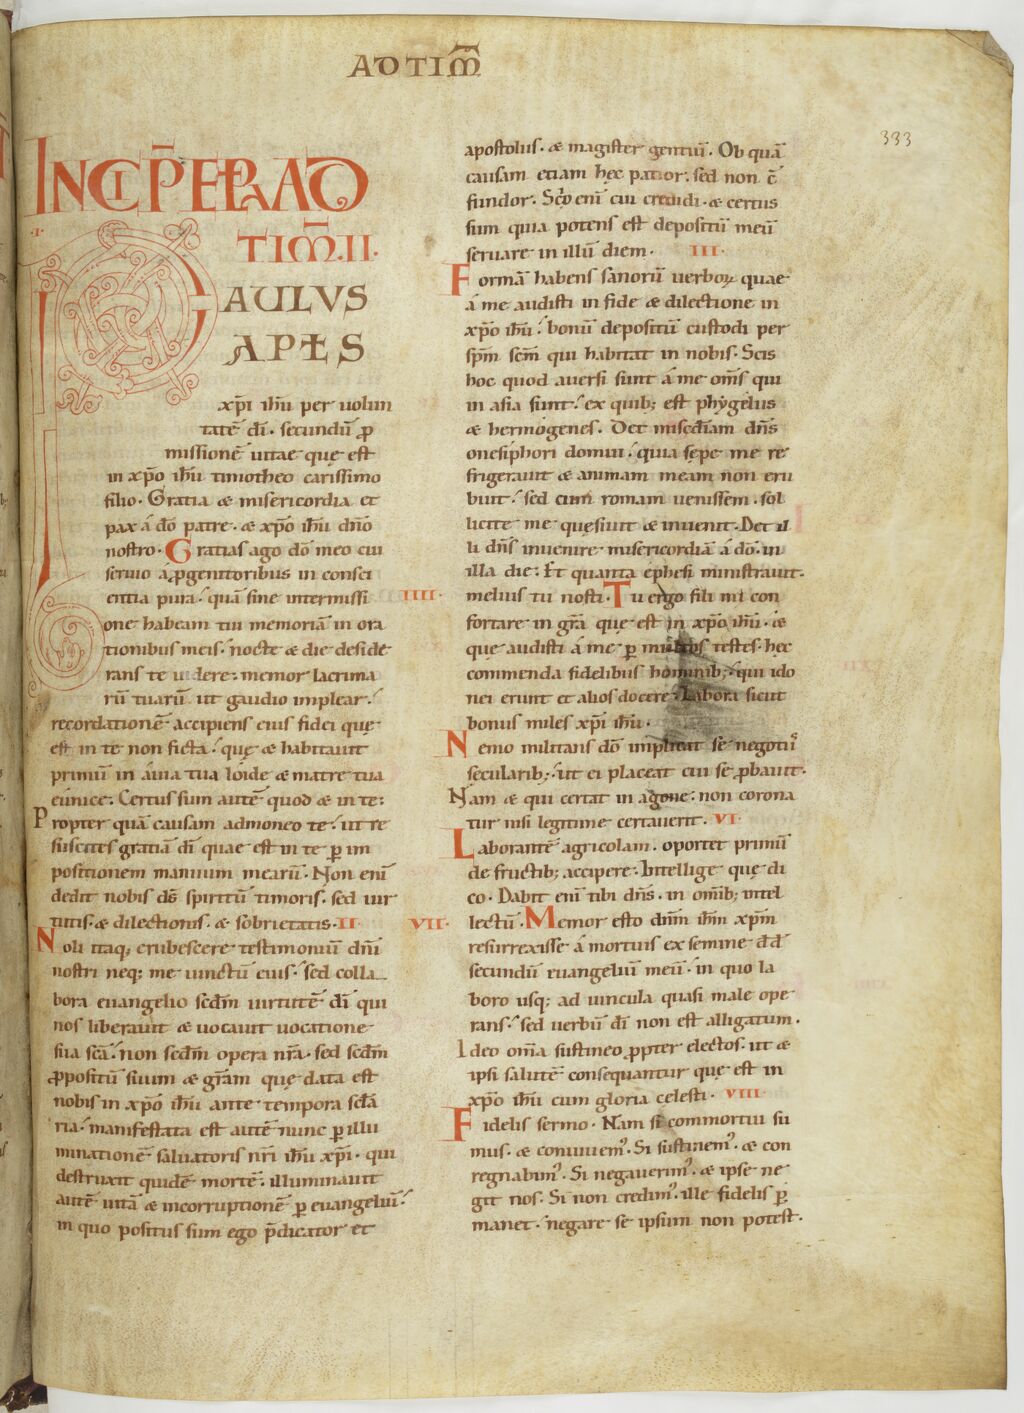 AD TIM̄
333
INCIP̄ EP̄LA AD
TIM̄. II.
.I.
PAULUS
APŁS
xp̄i ih̄u per uolun
tatē dī. secundū ꝓ
missionē uitae quę est
in xp̄o ih̄u timotheo carissimo
filio. Gratia & misericordia et
pax á dō patre. & xp̄o ih̄u dn̄o
nostro. Gratias ago dō meo cui
seruio á ꝓgenitoribus in consci
entia pura. quā sine intermissi
one habeam tui memoriā in ora
tionibus meis. nocte & die deside
rans te uidere. memor lacrima
rū tuarū. ut gaudio implear.
recordationē accipiens eius fidei quę
est in te non ficta. quę & habitauit
primū in áuia tua lóide & matre tua
eúnice. Certus sum autē quod & in te.
Propter quā causam admoneo te. ut re
suscites gratiā dī quae est in te ꝑ im
positionem manuum mearū. Non enī
dedit nobis ds̄ spiritū timoris. sed uir
tutis. & dilectionis. & sobrietatis. II.
Noli itaq; erubescere testimoniū dn̄i
nostri neq; me uinctū eius. sed colla
bora euangelio scd̄m uirtutē dī qui
nos liberauit & uocauit uocatione
sua scā. non scd̄m opera nr̄a. sed scd̄m
ꝓpositū suum & gr̄am quę data est
nobis in xp̄o ih̄u ante tempora scl̄a
ria. manifestata est autē nunc ꝑ illu
minationē saluatoris nr̄i ih̄u xp̄i. qui
destruxit quidē mortē. illuminauit
autē uitā & incorruptionē ꝑ euangeliū.
in quo positus sum ego p̄dicator et
apostolus. & magister gentiū. Ob quā
causam etiam hęc patior. sed non c̄
fundor. Scio enī cui credidi. & certus
sum quia potens est depositū meū
seruare in illū diem. III.
Formā habens sanorū uerboꝝ quae
á me audisti in fide & dilectione in
xp̄o ih̄u. bonū depositū custodi per
sp̄m scm̄ qui habitat in nobis. Scis
hoc quod auersi sunt á me om̄s qui
in asia sunt. ex quib; est phýgelus
& hermógenes. Det misc̄diam dn̄s
onesiphori domui. quia sępe me re
frigerauit & animam meam non eru
buit. sed cum romam uenissem. sol
licite me quęsiuit & inuenit. Det il
li dn̄s inuenire misericordiā á dō in
illa die. Et quanta ephesi ministrauit.
IIII. melius tu nosti. Tu ergo fili mi con
fortare in gr̄a quę est in xp̄o ih̄u. &
quę audisti á me ꝑ multos testes. hęc
commenda fidelibus hominib;. qui ido
nei erunt et alios docere. Labora sicut
bonus miles xp̄i ih̄u.
Nemo militans dō implicat se negotiis
secularib;. ut ei placeat cui se ꝓbauit.
Nam & qui certat in agone. non corona
tur nisi legitime certauerit. VI.
Laborantē agricolam. oportet primū
de fructib; accipere. Intellige quę di
co. Dabit enī tibi dn̄s. in omīb; intel
VII. lectū. Memor esto dn̄m ih̄m xp̄m
resurrexisse á mortuis ex semine dd̄
secundū euangeliū meū. in quo la
boro usq; ad uincula quasi male ope
rans. sed uerbū dī non est alligatum.
Ideo om̄a sustineo ꝓpter electos. ut &
ipsi salutē consequantur quę est in
xp̄o ih̄u cum gloria celesti. VIII.
Fidelis sermo. Nam si commortui su
mus. & conuiuem᾿. Si sustinem᾿. & con
regnabim᾿. Si negauerim᾿. & ipse ne
git nos. Si non credim᾿. ille fidelis ꝑ
manet. negare se ipsum non potest.